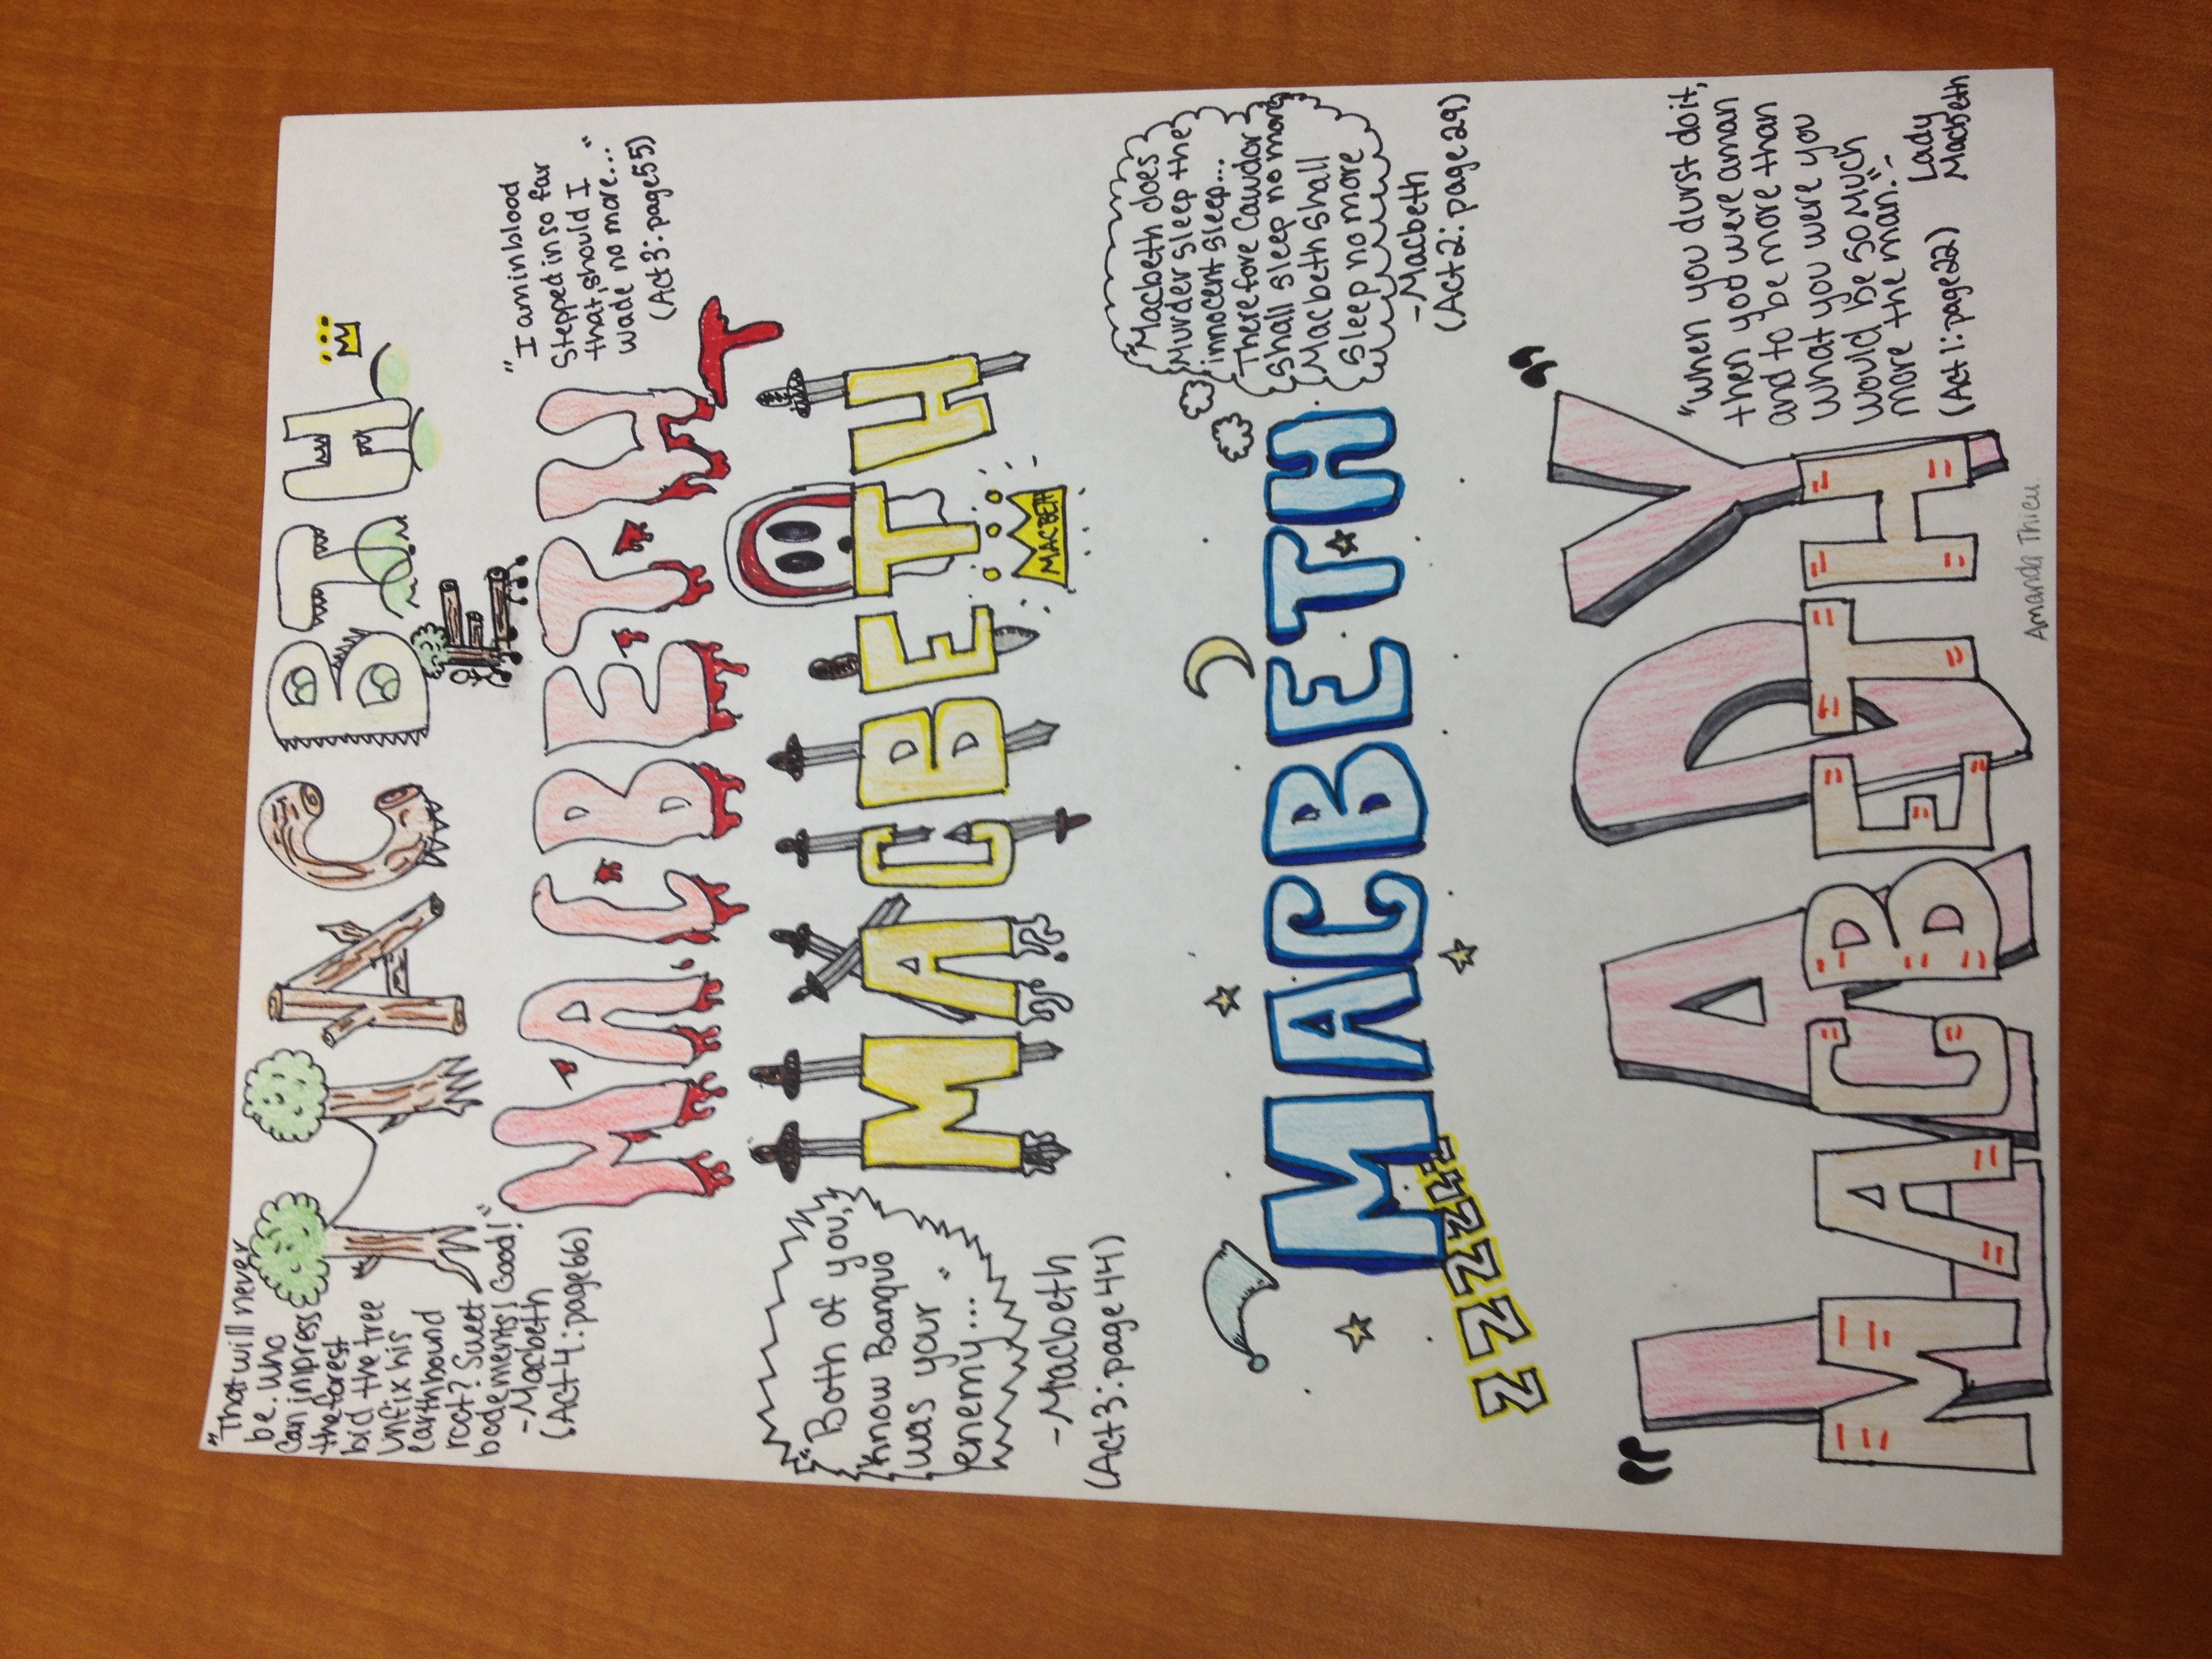 "That will never
be. Who
can impress
the forest
bid the tree
unfix his
earthbound
root? Sweet
bodements! Good!"
-Macbeth
(Act 4: page 66)
MACBETH
M
"I am in blood
Stepped in so far
that, should I
wade no more..."
(Act 3: page 55)
MACBETH
"Both of you,
know Banquo
was your
enemy..."
-Macbeth
(Act 3: page 44)
MACBETH
MACBETH
"Macbeth does
Murder sleep the
innocent sleep...
Therefore Cawdor
shall sleep no more
Macbeth shall
Sleep no more
-Macbeth
(Act 2: page 29)
MACBETH
ZZZZZZ
"LADY"
MACBETH
"When you durst do it,
then you were a man
and to be more than
what you were you
would be so much
more the man."-
(Act 1: page 22) Lady
Macbeth
Amanda Thieu